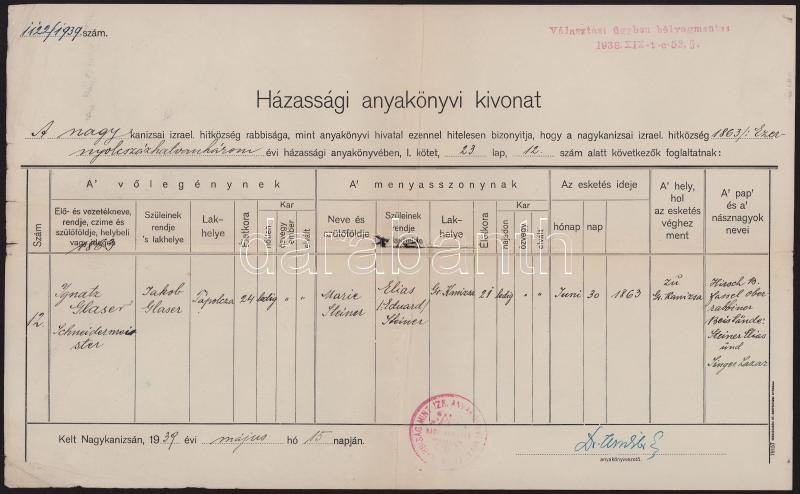 1122/1939 szám.
Választási ügyben bélyegmentes
1938.XIX-t-c 53.§.
Házassági anyakönyvi kivonat
A nagykanizsai izrael. hitközség rabbisága, mint anyakönyvi hivatal ezennel hitelesen bizonyitja, hogy a nagykanizsai izrael. hitközség 1863/: Ezer-
nyolcszázhatvanhárom évi házassági anyakönyvében, I. kötet, 23 lap, 12. szám alatt következők foglaltatnak:
Szám
A' vőlegénynek
Elő- és vezetékneve, rendje, czime és szülőföldje, helybeli vagy
1863
Szüleinek rendje 's lakhelye
Lak-helye
Életkora
Kar
nőtlen
özvegy ember
elvált
A' menyasszonynak
Neve és szülőföldje
Szüleinek rendje
Lak-helye
Életkora
Kar
hajadon
özvegy
elvált
Az esketés ideje
hónap
nap
A' hely, hol az esketés véghez ment
A' pap' és a' násznagyok nevei
12.
Ignatz Glaser Schneidermeister
Jakob Glaser
Tapolcza
24
ledig
" "
Marie Steiner
Elias /:Eduard/ Steiner
Gr. Kanizsa
21
ledig
" "
Juni
30
1863
zu Gr. Kanizsa
Hirsch B. Fassel ober rabbiner Beistände: Steiner Elias und Singer Lazar
darabanth
Kelt Nagykanizsán, 1939 évi május hó 15 napján.
anyakönyvvezető.